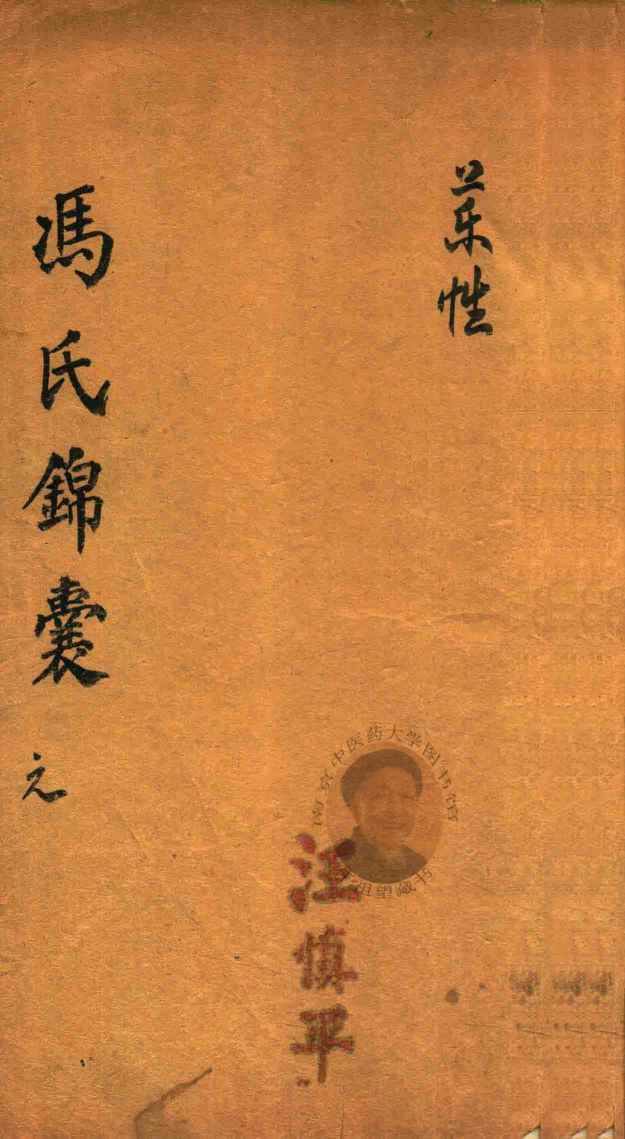 药性
馮氏錦囊
元
南京中医药大学图书馆
祖望藏书
汪慎平